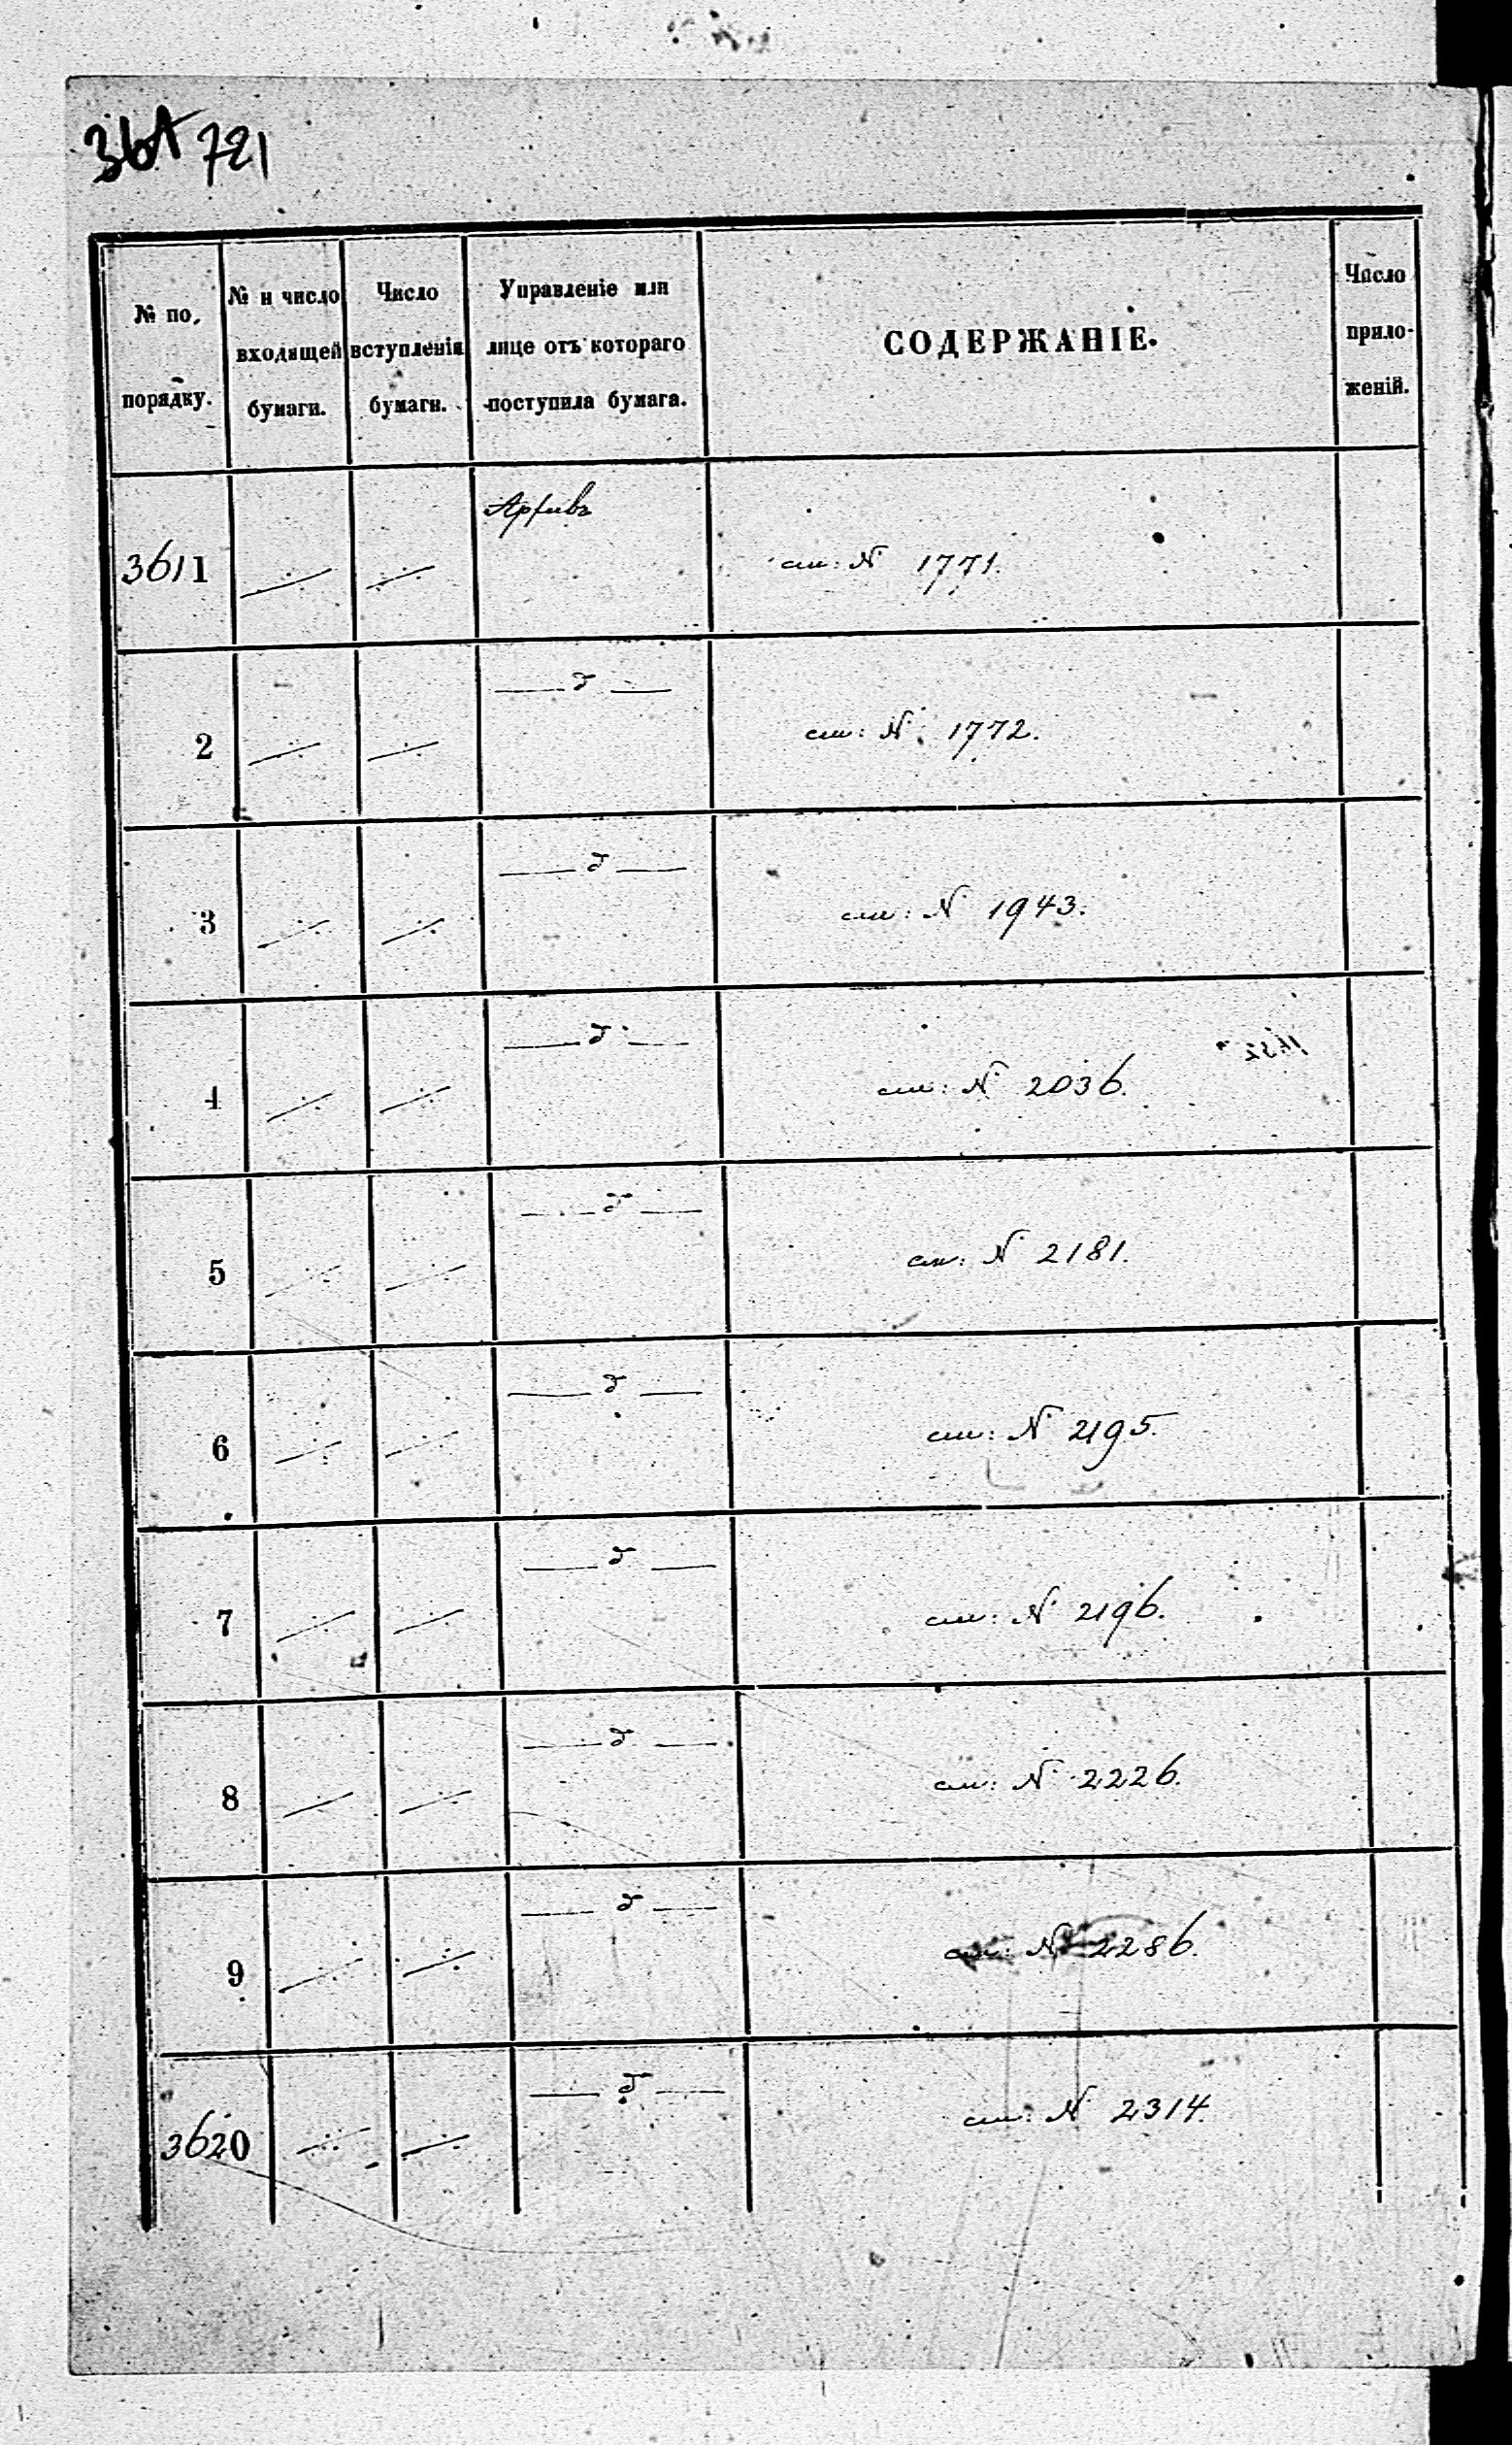 721
№ по порядку.
№ и число входящей бумаги.
Число вступленія бумаги.
Управленіе или лице отъ котораго поступила бумага.
СОДЕРЖАНІЕ.
Число приложеній.
3611 ÷ ÷ Архивъ см: № 1771.
2 ÷ ÷ — д — см: № 1772.
3 ÷ ÷ — д — см: № 1943.
4 ÷ ÷ — д — см: № 2036.
5 ÷ ÷ — д — см: № 2181.
6 ÷ ÷ — д — см: № 2195.
7 ÷ ÷ — д — см: № 2196.
8 ÷ ÷ — д — см: № 2226.
9 ÷ ÷ — д — см: № 2286.
3620 ÷ ÷ — д — см: № 2314.